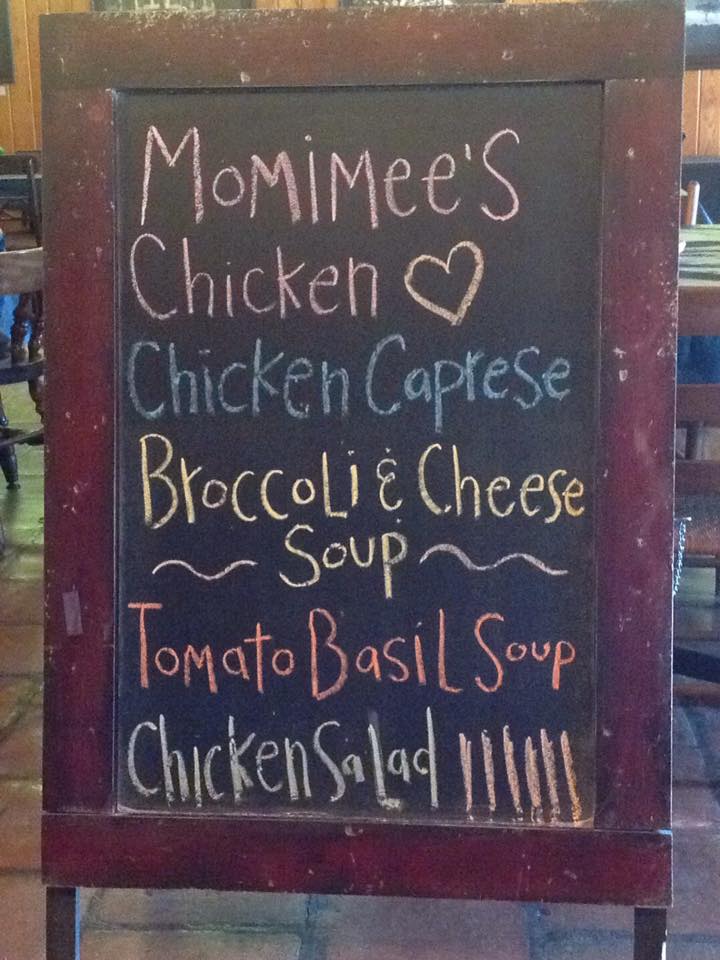 Momimee's
Chicken
Chicken Caprese
Broccoli & Cheese
Soup
Tomato Basil Soup
Chicken Salad